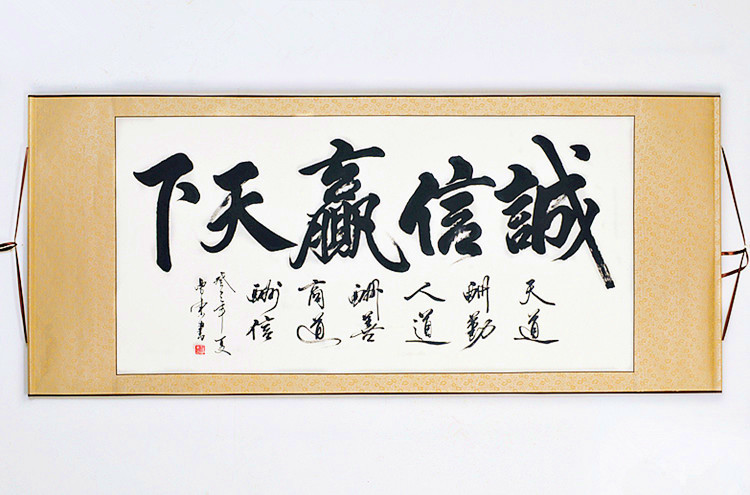 誠信贏天下
天道
酬勤
人道
酬善
商道
酬信
癸巳年夏
書